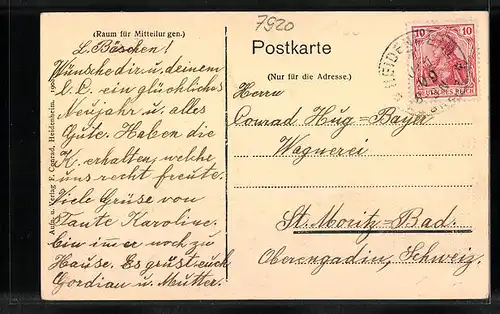 7920
(Raum für Mitteilungen.)
L. Bäschen!
Wünsche dir u. deinem
L. C. ein glückliches
Neujahr u. alles
Gute. Haben die
K. erhalten, welche
uns recht freute.
Viele Grüse von
Tante Karoline.
bin immer noch zu
Hause. Es grüst euch
Gordian u. Mutter.
Aufn. u. Verlag F. Conrad, Heidenheim.
Postkarte
(Nur für die Adresse.)
Herrn
Conrad Hug=Bayer
Wagnerei
St. Moritz=Bad.
Oberengadin, Schweiz.
10 10
DEUTSCHES REICH
HEIDENHEIM